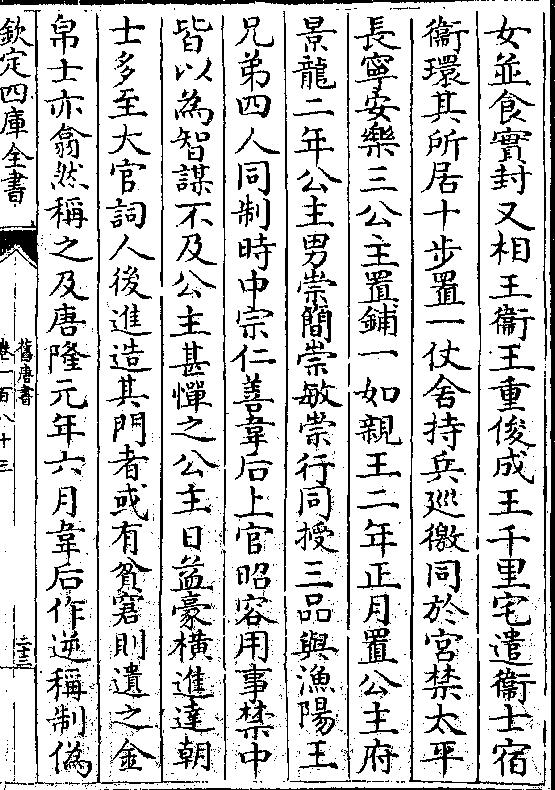 女並食實封又相王衞王重俊成王千里宅遣衞士宿
衞環其所居十步置一仗舍持兵巡徼同於宮禁太平
長寧安樂三公主置鋪一如親王二年正月置公主府
景龍二年公主男崇簡崇敏崇行同授三品與漁陽王
兄弟四人同制時中宗仁善韋后上官昭容用事禁中
皆以為智謀不及公主甚憚之公主日益豪橫進達朝
士多至大官詞人後進造其門者或有貧窘則遺之金
帛士亦翕然稱之及唐隆元年六月韋后作逆稱制偽
欽定四庫全書
舊唐書
卷一百八十三
二十三